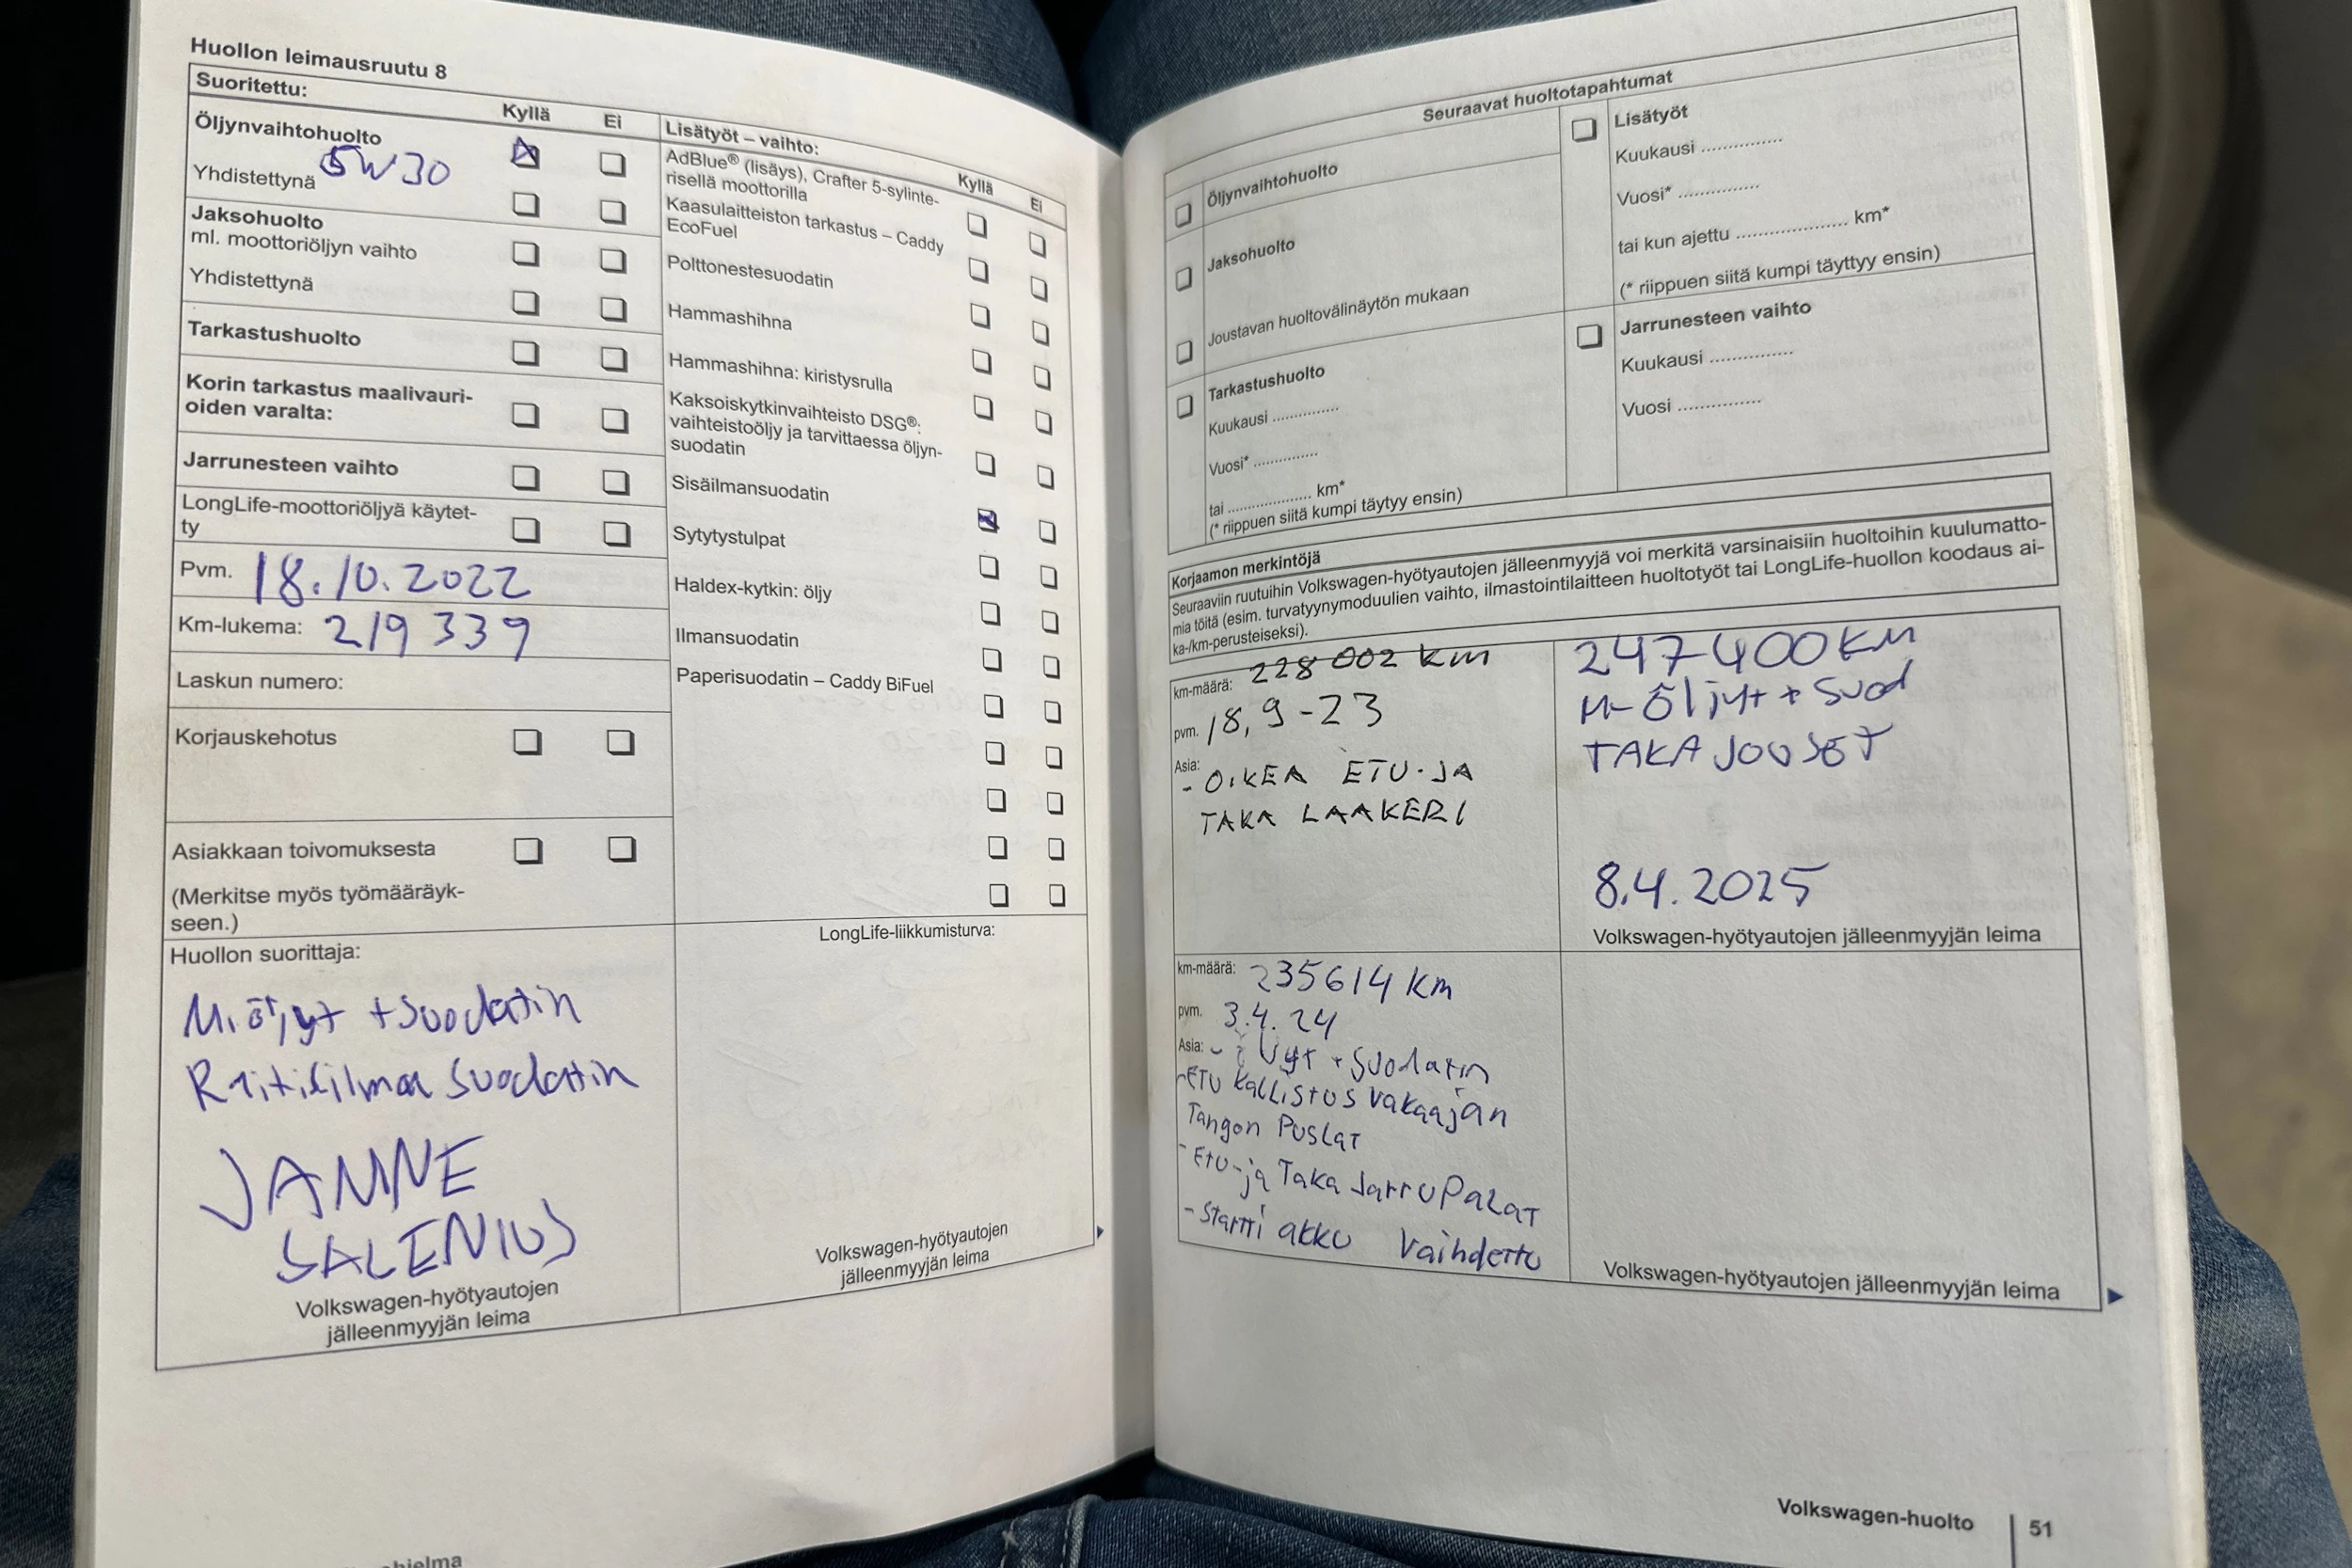 Huollon leimausruutu 8
Suoritettu:
Kyllä
Ei
Öljynvaihtohuolto
5W30
Yhdistettynä
Jaksohuolto
ml. moottoriöljyn vaihto
Yhdistettynä
Tarkastushuolto
Korin tarkastus maalivauri-
oiden varalta:
Jarrunesteen vaihto
LongLife-moottoriöljyä käytet-
ty
Pvm. 18.10.2022
Km-lukema: 219 339
Laskun numero:
Korjauskehotus
Asiakkaan toivomuksesta
(Merkitse myös työmääräyk-
seen.)
Huollon suorittaja:
M.öljyt + suodatin
Raitisilma suodatin
JANNE
SALENIUS
Volkswagen-hyötyautojen
jälleenmyyjän leima
Lisätyöt – vaihto:
Kyllä
Ei
AdBlue® (lisäys), Crafter 5-sylinte-
risellä moottorilla
Kaasulaitteiston tarkastus – Caddy
EcoFuel
Polttonestesuodatin
Hammashihna
Hammashihna: kiristysrulla
Kaksoiskytkinvaihteisto DSG®:
vaihteistoöljy ja tarvittaessa öljyn-
suodatin
Sisäilmansuodatin
Sytytystulpat
Haldex-kytkin: öljy
Ilmansuodatin
Paperisuodatin – Caddy BiFuel
LongLife-liikkumisturva:
Volkswagen-hyötyautojen
jälleenmyyjän leima
Seuraavat huoltotapahtumat
Öljynvaihtohuolto
Jaksohuolto
Joustavan huoltovälinäytön mukaan
Tarkastushuolto
Kuukausi ...............
Vuosi* ...............
tai .................... km*
(* riippuen siitä kumpi täytyy ensin)
Lisätyöt
Kuukausi ...............
Vuosi* ...............
tai kun ajettu .................... km*
(* riippuen siitä kumpi täyttyy ensin)
Jarrunesteen vaihto
Kuukausi ...............
Vuosi ...............
Korjaamon merkintöjä
Seuraaviin ruutuihin Volkswagen-hyötyautojen jälleenmyyjä voi merkitä varsinaisiin huoltoihin kuulumatto-
mia töitä (esim. turvatyynymoduulien vaihto, ilmastointilaitteen huoltotyöt tai LongLife-huollon koodaus ai-
ka-/km-perusteiseksi).
km-määrä: 228 002 km
pvm. 18,9-23
Asia:
- OIKEA ETU-JA
TAKA LAAKERI
247400KM
M-Öljyt + Suod
TAKA JOUSET
8.4.2025
Volkswagen-hyötyautojen jälleenmyyjän leima
km-määrä: 235614 km
pvm. 3.4.24
Asia: - öljyt + suodatin
-ETU kallistus vakaajan
Tangon Puslat
- Etu-ja Taka JarruPalat
- Startti akku Vaihdettu
Volkswagen-hyötyautojen jälleenmyyjän leima
Volkswagen-huolto
51